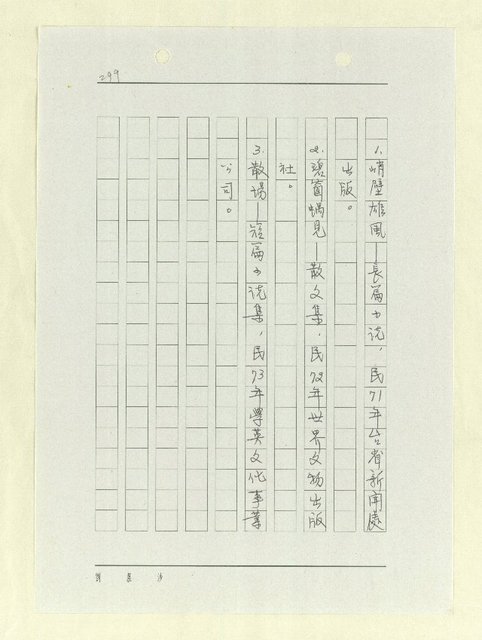 299
1.峭壁雄風—長篇小說，民71年台省新聞處
出版。
2.碧窗蝸見—散文集，民72年世界文物出版
社。
3.散場—短篇小說集，民73年學英文化事業
公司。